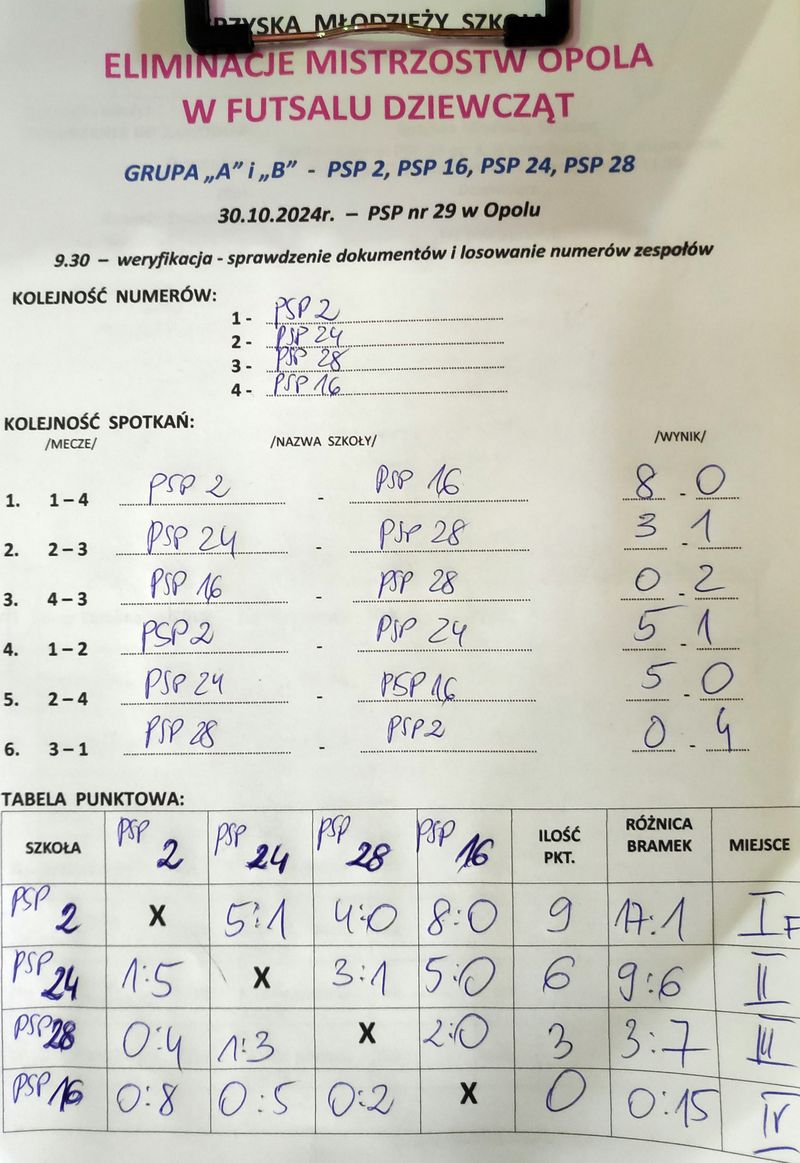 MŁODZIEŻY
ELIMINACJE MISTRZOSTW OPOLA
W FUTSALU DZIEWCZĄT
GRUPA „A” i „B” - PSP 2, PSP 16, PSP 24, PSP 28
30.10.2024r. – PSP nr 29 w Opolu
9.30 – weryfikacja - sprawdzenie dokumentów i losowanie numerów zespołów
KOLEJNOŚĆ NUMERÓW:
1 - PSP 2
2 - PSP 24
3 - PSP 28
4 - PSP 16
KOLEJNOŚĆ SPOTKAŃ:
/MECZE/ /NAZWA SZKOŁY/ /WYNIK/
1. 1 – 4 PSP 2 - PSP 16 8 - 0
2. 2 – 3 PSP 24 - PSP 28 3 - 1
3. 4 – 3 PSP 16 - PSP 28 0 - 2
4. 1 – 2 PSP 2 - PSP 24 5 - 1
5. 2 – 4 PSP 24 - PSP 16 5 - 0
6. 3 – 1 PSP 28 - PSP 2 0 - 4
TABELA PUNKTOWA:
SZKOŁA PSP 2 PSP 24 PSP 28 PSP 16 ILOŚĆ PKT. RÓŻNICA BRAMEK MIEJSCE
PSP 2 X 5:1 4:0 8:0 9 17:1 I F
PSP 24 1:5 X 3:1 5:0 6 9:6 II
PSP 28 0:4 1:3 X 2:0 3 3:7 III
PSP 16 0:8 0:5 0:2 X 0 0:15 IV